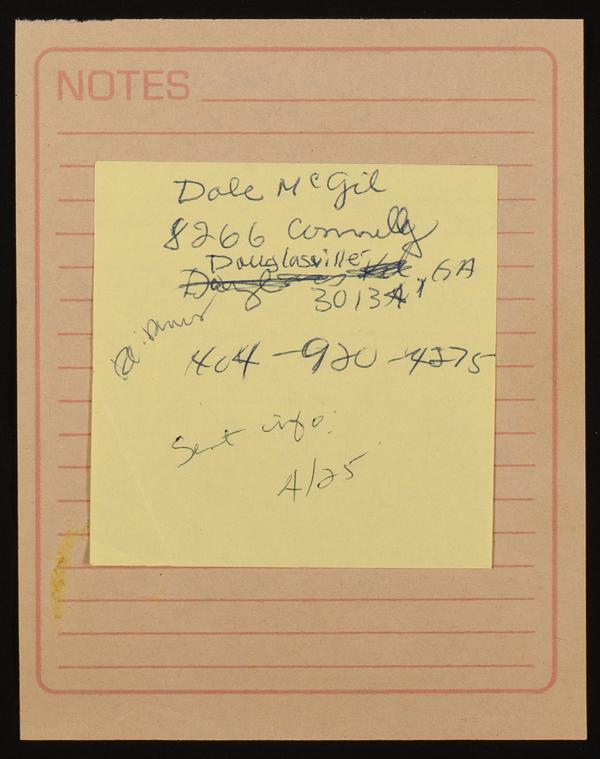 NOTES
Dale McGil
8266 Connelly
Douglasville
, GA
30134
404-920-4275
Sent info.
4/25